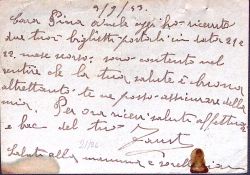 9/9/33.
Cara Pina a mezz' oggi ho ricevuto
due tuoi biglietti postali in data 21 e
22 mese scorso; sono contento nel
sentire che la tua salute è buona
altrettanto te ne posso assicurare della
mia. Per ora ricevi saluti affettuosi
e baci del tuo Faust
21/26
Saluti alla mamma e sorella